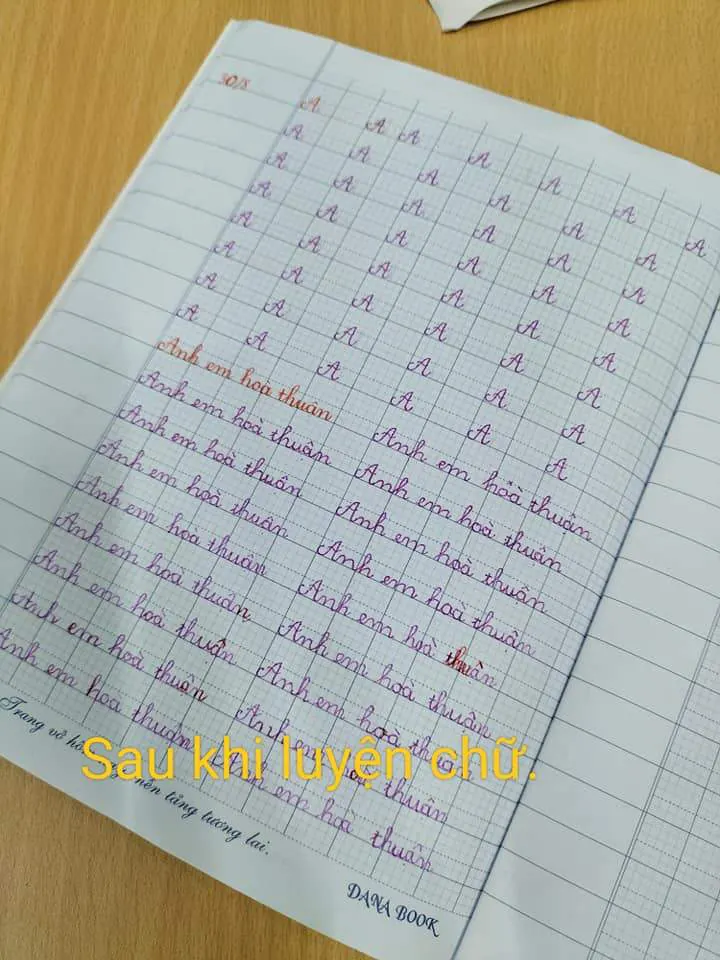 30/8 A A A A A A A
A A A A A A
A A A A A A
A A A A A A
A A A A A A
A A A A A A
A A A A A A
A A A A A A
Anh em hoà thuận Anh em hoà thuận
Anh em hoà thuận Anh em hoà thuận
Anh em hoà thuận Anh em hoà thuận
Anh em hoà thuận Anh em hoà thuận
Anh em hoà thuận Anh em hoà thuận
Anh em hoà thuận Anh em hoà thuận
Anh em hoà thuận Anh em hoà thuận
Anh em hoà thuận Anh em hoà thuận
Anh em hoà thuận Anh em hoà thuận
Sau khi luyện chữ.
Trang vở nền tảng tương lai.
DANA BOOK